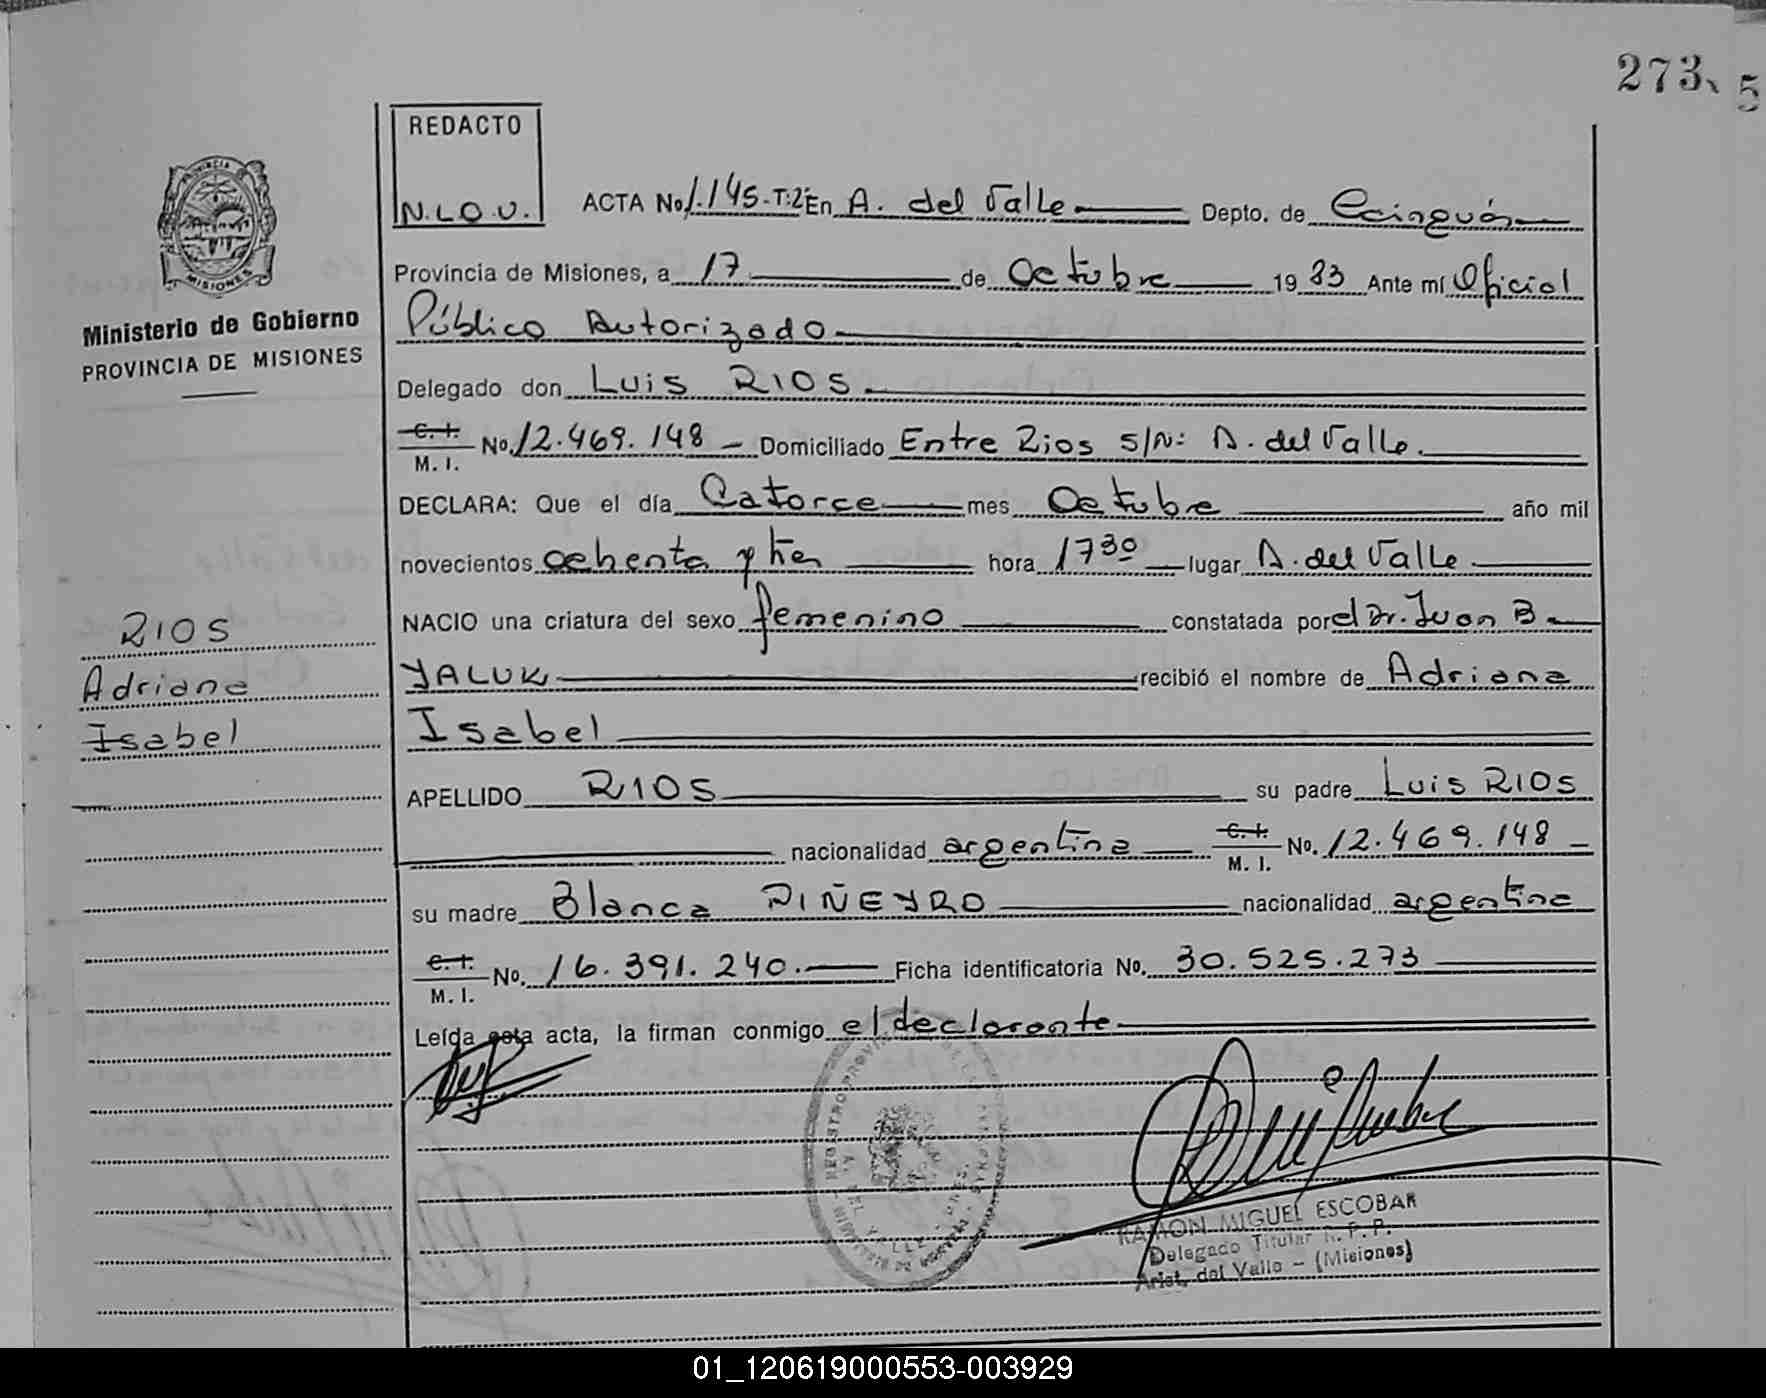 273, 5
REDACTO
N.L.O.U.
ACTA No. 1.145-T:2º En A. del Valle Depto. de Cainguás
Provincia de Misiones, a 17 de Octubre 1983 Ante mí Oficial
Público Autorizado
Delegado don Luis RIOS
C. I. M. I. No. 12.469.148 Domiciliado Entre Rios S/N: A. del Valle.
DECLARA: Que el día Catorce mes Octubre año mil
novecientos ochenta y tres hora 17 30 lugar A. del Valle
NACIO una criatura del sexo femenino constatada por el Dr. Juan B
YALUK recibió el nombre de Adriana
Isabel
APELLIDO RIOS su padre Luis RIOS
nacionalidad argentina C. I. M. I. No. 12.469.148
su madre Blanca PIÑEYRO nacionalidad argentina
C. I. M. I. No. 16.391.240. Ficha identificatoria No. 30.525.273
Leída esta acta, la firman conmigo el declarante
PROVINCIA
MISIONES
Ministerio de Gobierno
PROVINCIA DE MISIONES
RIOS
Adriana
Isabel
RAMON MIGUEL ESCOBAR
Delegado Titular R. P. P.
Arist. del Valle - (Misiones)
01_120619000553-003929